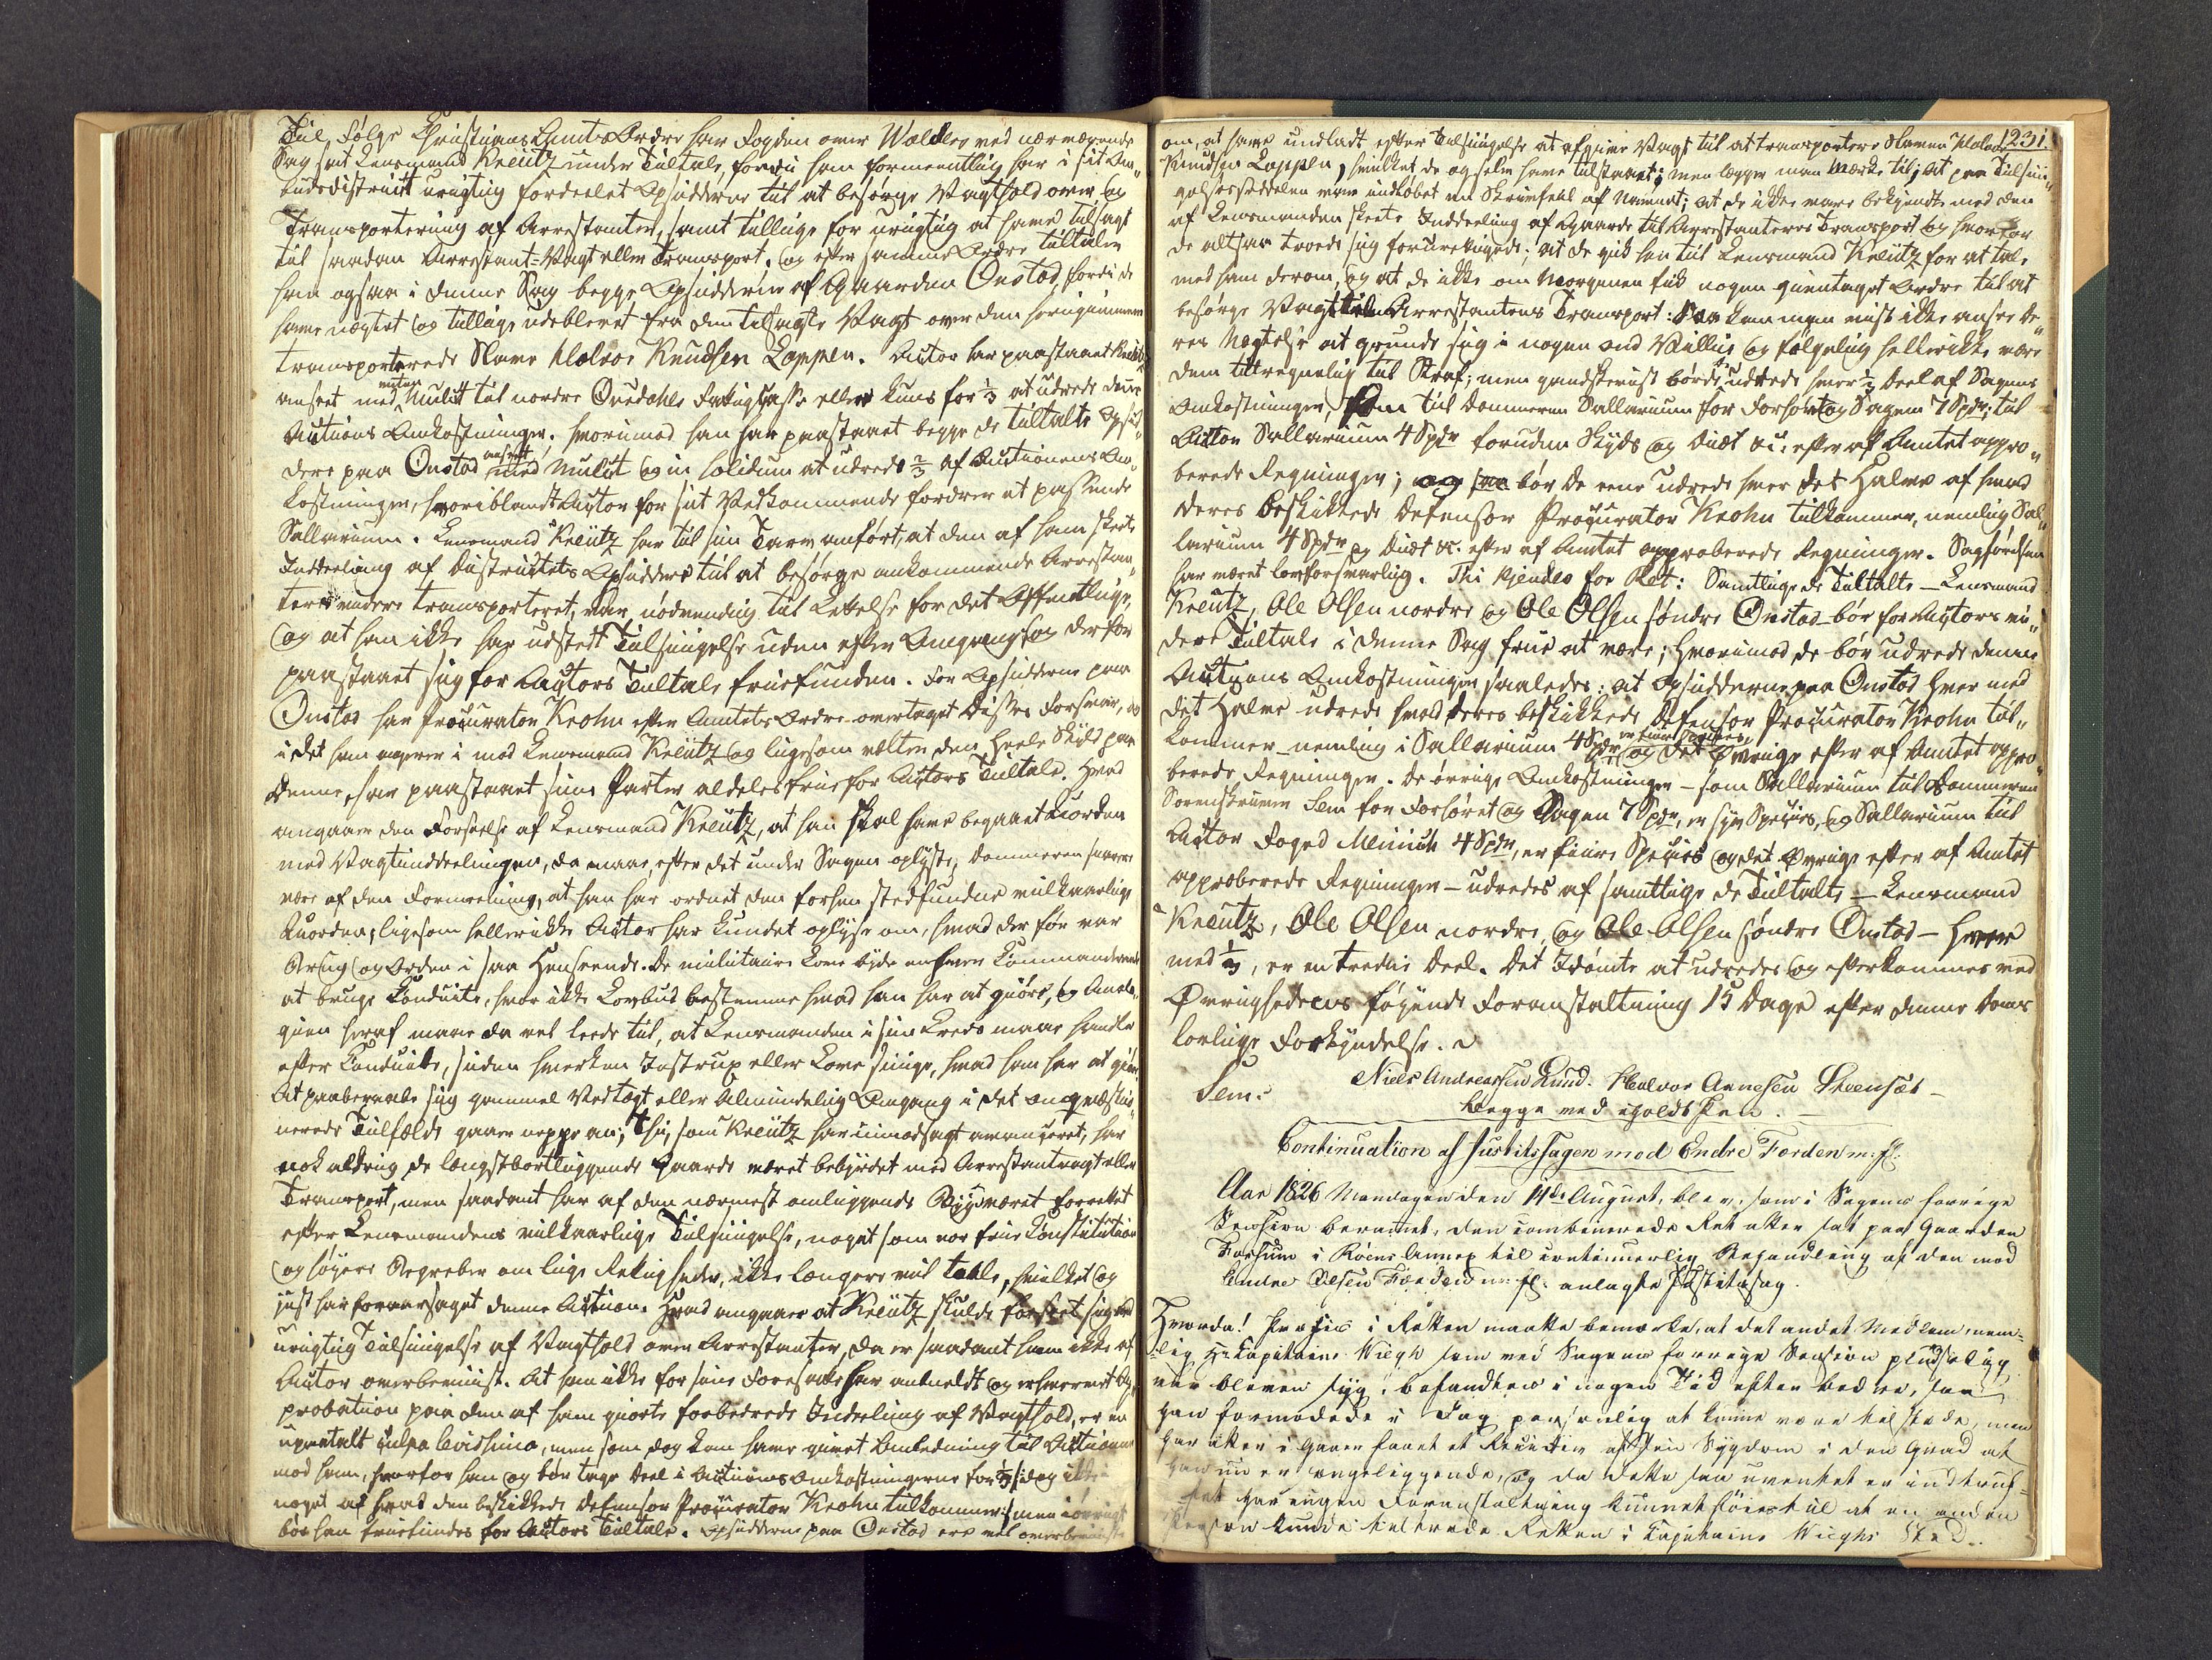 Til Følge Christians Amts Ordre har Fogden over Walders ved nærværende
Sag sat Lensmand Kreütz under Tiltale, fordi han formeentlig har i sit Om„
budsdistrict urigtig fordeelet Opsidderne til at besørge Vagthold over og
Transportering af Arrestanter, samt tillige for urigtig at have tilsagt
til saadan Arrestant-Vagt eller Transport, og efter samme Ordre tiltales
han ogsaa i denne Sag begge Opsidderne af Gaarden Onstad, fordi de
have nægtet og tillige udeblevet fra den tilsagte Vagt over den herigjennem
transporterede Slave Halvor Knudsen Loppen. Actor har paastaaet Kreütz
anseet med Mulct til nordre Ourdahls Fattigkasse eller kuns for 1/3 at udrede denne
Actions Omkostninger. Hvorimod han har paastaaet begge de tiltalte Opsid„
dere paa Onstad anseet med Mulct og in solidum at udrede 2/3 af Actionens Om„
kostninger, hvoriblandt Actor for sit Vedkommende fordrer et passende
Sallarium. Lensmand Kreütz har til sin Tarv anført, at den af ham skeete
Inddeeling af Districtets Opsiddere til at besørge ankommende Arrestan„
ters videre transporteret, var nødvendig til Lettelse for det Offentlige,
og at han ikke har udstedt Tilsigelse uden efter Omgang og derfor
paastaaet sig for Actors Tiltale friefunden. For Opsidderne paa
Onstad har Procurator Krohn efter Amtets Ordre overtaget Disses Forsvar, og
i det han agerer i mod Lensmand Kreütz og ligesom vælter den heele Skyld paa
denne, har paastaaet sine Parter aldeles frie for Actors Tiltale. Hvad
angaaer den Forseelse af Lensmand Kreütz, at han skal have begaaet Uorden
med Vagtinddeelingen, da maae, efter det under Sagen oplyste, Dommeren snarere
være af den Formeening, at han har ordnet den forhen stedfundne vilkaarlige
Uorden, ligesom heller ikke Actor har kundet oplyse om, hvad der før var
Brug og Orden i saa Henseende. De militaire Love byde enhver Commanderende
at bruge Conduite, hvor ikke Lovbud bestemme hvad han har at giöre, og Analo„
gien heraf maae da vel lede til, at Lensmanden i sin Kreds maae handle
efter Conduite, siden hverken Instrux eller Love sige, hvad han har at giøre.
At paaberaabe sig gammel Vedtægt eller Almindelig Omgang i det omquæstio„
nerede Tilfælde gaaer neppe an; thi, som Kreütz har uimodsagt avanceret, har
nok aldrig de længstbortliggende Gaarde været bebyrdet med Arrestantvagt eller
Transport, men saadant har af den nærmest omliggende Bÿgd været forrettet
efter Lensmandens vilkaarlige Tilsigelse, noget som vor frie Constitution
og höyere Begreber om lige Rettigheder, ikke længere vil taale, hvilket og
just har foraarsaget denne Action. Hvad angaaer at Kreütz skulde forseet sig ved
urigtig Tilsigelse af Vagthold over Arrestanter, da er saadant ham ikke af
Actor overbeviist. At han ikke for sine Foresatte har anmeldt og erhvervet Ap„
probation paa den af ham giorte forbedrede Inddeeling af Vagthold, er en
upaatalt culpa levissima, men som dog kan have givet Anledning til Actionen
mod ham, hvorfor han og bør tage Deel i Actions Omkostningerne for 1/3 /: dog ikke
noget af hvad den beskikkede Defensor Procurator Krohn tilkommer :/ men iøvrigt
bør han friefindes for Actors Tiltale. Opsidderne paa Onstad ere vel overbeviiste
1231.
om, at have undladt efter Tilsigelse at afgive Vagt til at transportere Slaven Halvor
Knudsen Loppen, hvilket de og selv have tilstaaet; men lægger man Mærke til, at paa Tilsii„
gelsesseddelen var indløbet en Skrivfeil af Navnet; at de ikke vare bekjendte med den
af Lensmanden skeete Inddeeling af Gaarde til Arrestanteres Transport og hvorfor
de altsaa troede sig forurettigede; at de gik hen til Lensmand Kreütz for at tale
med ham derom, og at de ikke om Morgenen fik nogen gientaget Ordre til at
besørge Vagt til Arrestantens Transport: Saa kan man vist ikke ansee De„
res Nægtelse at grunde sig i nogen ond Villie og følgelig heller ikke være
dem tilregnelig til Straf; men gandskevist børde udrede hver 1/3 Deel af Sagens
Omkostninger, som til Dommeren Sallarium for Forhøret og Sagen 7 Spdr; til
Actor Sallarium 4 Spdr foruden Skyds og Diæt &c. efter af Amtet appro„
berede Regninger; og saa bør De eene udrede hver det Halve af hvad
deres beskikkede Defensor Procurator Krohn tilkommer, nemlig Sal„
larium 4 Spdr og Diæt &c. efter af Amtet approberede Regninger. Sagførdsen
har været lovforsvarlig. Thi kjendes for Ret: Samtlige de Tiltalte – Lensmand
Kreütz, Ole Olsen nordre og Ole Olsen søndre Onstad – bør for Actors vi„
dere Tiltale i denne Sag frie at være; Hvorimod de bør udrede denne
Actions Omkostninger saaledes: at Opsidderne paa Onstad hver med
det Halve udrede hvad deres beskikkede Defensor Procurator Krohn til„
kommer – nemlig i Sallarium 4 Spdr er fiire Species, og det Øvrige efter af Amtet appro„
berede Regninger. De øvrige Omkostninger – som Sallarium til Dommeren
Sorenskriver Sem for Forhøret og Sagen 7 Spdr, er syv Species, og Sallarium til
Actor Foged Meinich 4 Spdr, er fiire Species og det Øvrige efter af Amtet
approberede Regninger – udredes af samtlige de Tiltalte – Lensmand
Kreutz, Ole Olsen nordre, og Ole Olsen søndre Onstad – hver
med 1/3, er en tredie Deel. Det Idømte at udredes og efterkommes ved
Øvrighedens føyende Foranstaltning 15 Dage efter denne Doms
lovlige Forkyndelse.
Sem. Niels Andreassen Ruud. Halvor Arnesen Steensæt –
begge med iholdt Pen.
Continuation af Justitssagen mod Endre Førden m: fl:
Aar 1826 Mandagen den 14de August, blev, som i Sagens forrige
Session berammet, den combinerede Ret atter sat paa Gaarden
Fossum i Röens Annex til continuerlig Behandling af den mod
Endre Olsen Förden m: fl: anlagte Justitssag.
Hvorda! Præses i Retten maatte bemærke, at det andet Medlem, nem-
lig Hr Capitaine Wiegh som ved Sagens forrige Session pludselig
var bleven syg, befandtes i nogen Tid efter bedre, saa
han formodede i Dag personlig at kunne være tilstede, men
har atter i Gaar faaet et Recidiv af sin Sygdom i den Grad at
han nu er sengeliggende, og da dette saa uventet er indtruf-
fet har ingen Foranstaltning kunnet föies til at en anden
Person kunde tiltræde Retten i Capitaine Wieghs Sted.